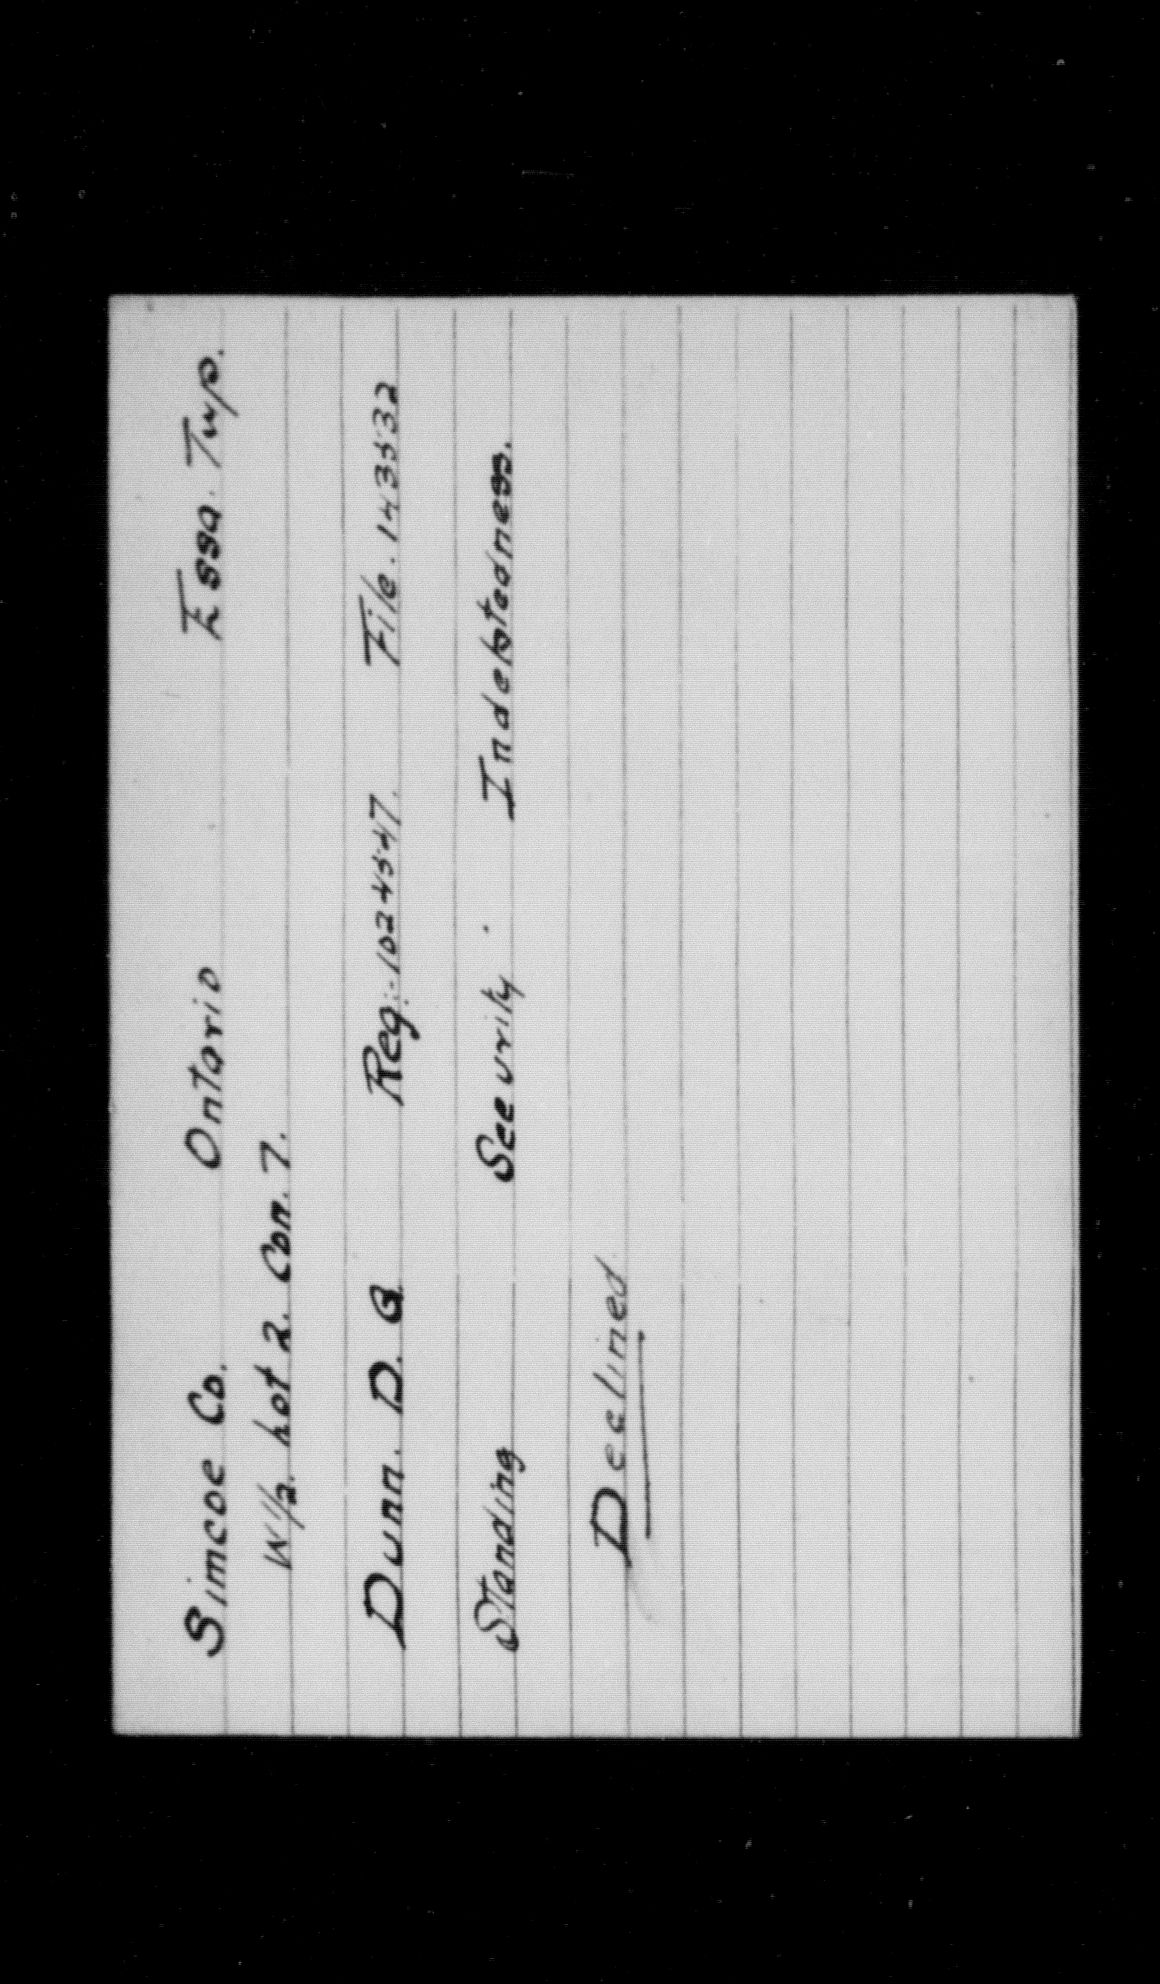 Simcoe Co. Ontario Essa. Twp.
W½. Lot 2. Con. 7.
Dunn. D. G. Reg:-1024547. File. 143532
Standing Security. Indebtedness.
Declined